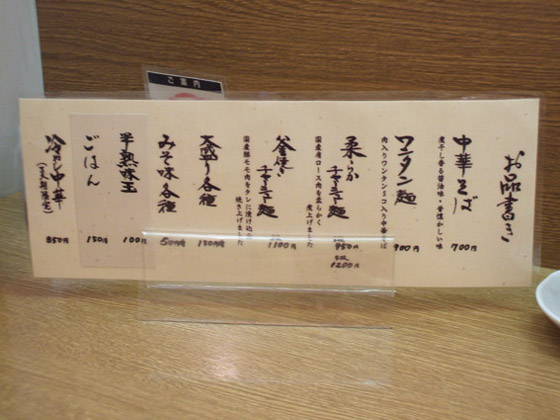 ご案内
お品書き
中華そば
煮干し香る醤油味・昔懐かしい味
700円
ワンタン麺
肉入りワンタン5コ入り中華そば
900円
柔らか
チャーシュー麺
国産肩ロース肉を柔らかく
煮上げました
950円
1200円
釜焼き
チャーシュー麺
国産豚モモ肉をタレに漬け込み
焼き上げました
1100円
大盛り各種
150円
みそ味各種
50円増
半熟味玉
100円
ごはん
150円
冷やし中華
(夏期限定)
850円